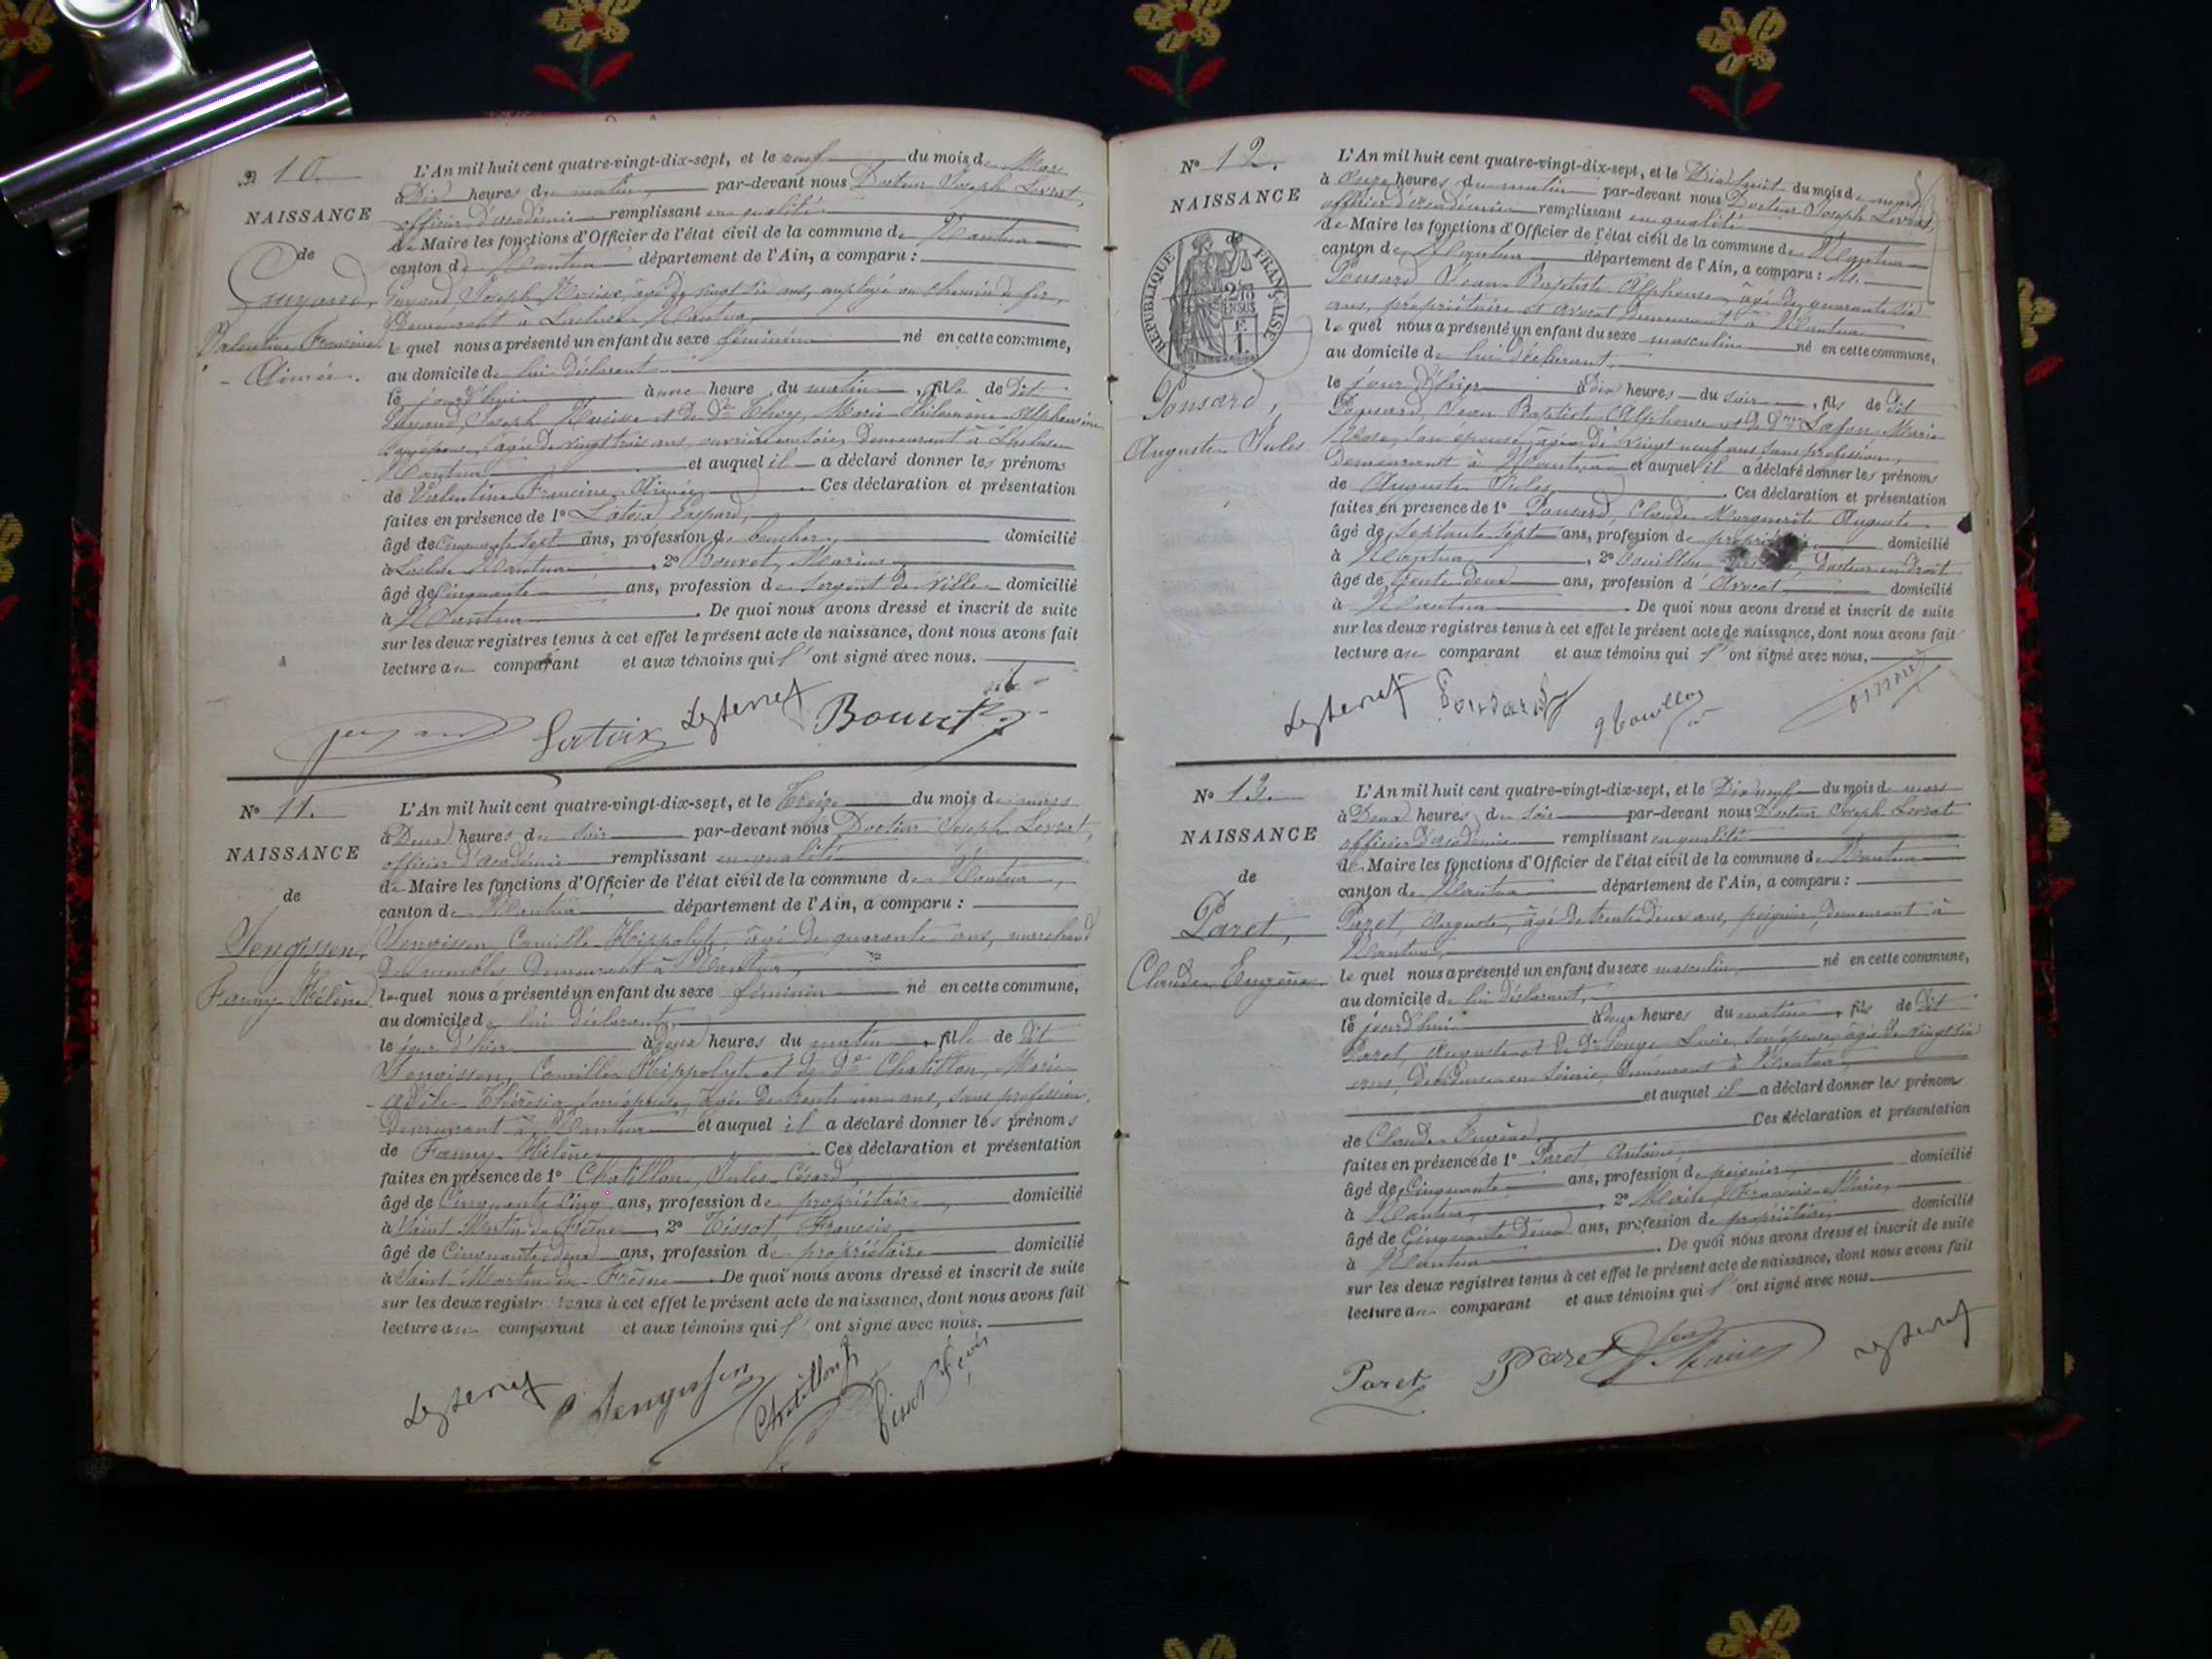 N° 10.
NAISSANCE
de
Guyand,
Valentine Francine
Aimée.
L'An mil huit cent quatre-vingt-dix-sept, et le neuf du mois de Mars
à Dix heures du matin, par-devant nous Docteur Joseph Levrat,
officier d'académie remplissant en qualité
de Maire les fonctions d'Officier de l'état civil de la commune de Nantua
canton de Nantua département de l'Ain, a comparu :
Guyand Joseph âgé de vingt six ans, employé au chemin de fer,
demeurant à Nantua,
lequel nous a présenté un enfant du sexe féminin né en cette commune,
au domicile de lui déclarant
le jourd'hui à une heure du matin, fille de dit
Guyand, Joseph et de Marie Philomène Alphonsine
son épouse, âgée de vingt trois ans, ouvrière en soie, demeurant à
Nantua et auquel il a déclaré donner les prénoms
de Valentine Francine Aimée. Ces déclaration et présentation
faites en présence de 1° Gaspard,
âgé de Cinquante sept ans, profession de boucher, domicilié
à Nantua, 2° Bouvet, Marius,
âgé de Cinquante ans, profession de Sergent de Ville domicilié
à Nantua. De quoi nous avons dressé et inscrit de suite
sur les deux registres tenus à cet effet le présent acte de naissance, dont nous avons fait
lecture au comparant et aux témoins qui l'ont signé avec nous.
N° 11.
NAISSANCE
de
Jengisson,
Fanny Hélène
L'An mil huit cent quatre-vingt-dix-sept, et le Treize du mois de mars
à Deux heures du soir par-devant nous Docteur Joseph Levrat,
officier d'académie remplissant en qualité
de Maire les fonctions d'Officier de l'état civil de la commune de Nantua,
canton de Nantua département de l'Ain, a comparu :
Camille Hippolyte, âgé de quarante ans, marchand
de meubles demeurant à Nantua,
lequel nous a présenté un enfant du sexe féminin né en cette commune,
au domicile de lui déclarant,
le jour d'hier à deux heures du matin, fille de dit
Camille Hippolyte et de dme Chatillon, Marie
Adèle son épouse, âgée de trente un ans, sans profession,
demeurant à Nantua et auquel il a déclaré donner les prénoms
de Fanny Hélène. Ces déclaration et présentation
faites en présence de 1° Chatillon, Jules César,
âgé de Cinquante Cinq ans, profession de propriétaire, domicilié
à Saint Martin du Frêne, 2° Tissot, François,
âgé de Cinquante deux ans, profession de propriétaire domicilié
à Saint Martin du Frêne. De quoi nous avons dressé et inscrit de suite
sur les deux registres tenus à cet effet le présent acte de naissance, dont nous avons fait
lecture au comparant et aux témoins qui l'ont signé avec nous.
N° 12.
NAISSANCE
de
RÉPUBLIQUE FRANÇAISE
Ponsard,
Auguste Jules
L'An mil huit cent quatre-vingt-dix-sept, et le Dix huit du mois de mars
à Onze heures du matin par-devant nous Docteur Joseph Levrat,
officier d'académie remplissant en qualité
de Maire les fonctions d'Officier de l'état civil de la commune de Nantua
canton de Nantua département de l'Ain, a comparu : M.
Ponsard Jean Baptiste Alphonse, âgé de quarante six
ans, propriétaire et avocat, demeurant à Nantua
lequel nous a présenté un enfant du sexe masculin né en cette commune,
au domicile de lui déclarant,
le jour d'hier à dix heures du soir, fils de dit
Ponsard, Jean Baptiste Alphonse et de Dme Lafon Marie
son épouse, âgée de vingt neuf ans sans profession,
demeurant à Nantua et auquel il a déclaré donner les prénoms
de Auguste Jules. Ces déclaration et présentation
faites en présence de 1° Ponsard, Claude Marguerite Auguste
âgé de septante sept ans, profession de domicilié
à Nantua, 2° docteur en droit
âgé de trente deux ans, profession d'Avocat, domicilié
à Nantua. De quoi nous avons dressé et inscrit de suite
sur les deux registres tenus à cet effet le présent acte de naissance, dont nous avons fait
lecture au comparant et aux témoins qui l'ont signé avec nous.
N° 13.
NAISSANCE
de
Paret,
Claude Eugène
L'An mil huit cent quatre-vingt-dix-sept, et le Dix neuf du mois de mars
à Deux heures du soir par-devant nous Docteur Joseph Levrat
officier d'académie remplissant en qualité
de Maire les fonctions d'Officier de l'état civil de la commune de Nantua
canton de Nantua département de l'Ain, a comparu :
Paret, Auguste, âgé de trente deux ans, peignier, demeurant à
Nantua,
lequel nous a présenté un enfant du sexe masculin, né en cette commune,
au domicile de lui déclarant,
le jourd'hui à deux heures du matin, fils de dit
Paret, Auguste et de Lucie, son épouse, âgée de vingt six
ans, demeurant à Nantua,
et auquel il a déclaré donner les prénoms
de Claude Eugène. Ces déclaration et présentation
faites en présence de 1° Paret, Antoine,
âgé de Cinquante ans, profession de peignier, domicilié
à Nantua, 2° François Marie,
âgé de Cinquante deux ans, profession de propriétaire, domicilié
à Nantua. De quoi nous avons dressé et inscrit de suite
sur les deux registres tenus à cet effet le présent acte de naissance, dont nous avons fait
lecture au comparant et aux témoins qui l'ont signé avec nous.
Paret
Paret